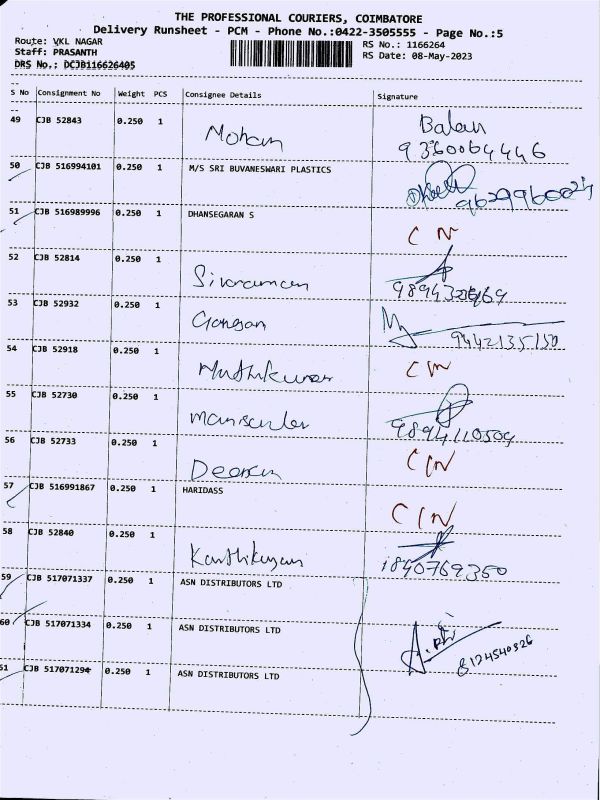 THE PROFESSIONAL COURIERS, COIMBATORE
Delivery Runsheet - PCM - Phone No.:0422-3505555 - Page No.:5
Route: VKL NAGAR
RS No.: 1166264
Staff: PRASANTH
RS Date: 08-May-2023
DRS No.: DCJB116626405
S No Consignment No Weight PCS Consignee Details Signature
49 CJB 52843 0.250 1 Mohan Balan
9360064446
50 CJB 516994101 0.250 1 M/S SRI BUVANESWARI PLASTICS
51 CJB 516989996 0.250 1 DHANSEGARAN S
C N
52 CJB 52814 0.250 1 Sivaraman
53 CJB 52932 0.250 1 Gangan
9442135150
54 CJB 52918 0.250 1 Muthukumar C/N
55 CJB 52730 0.250 1
9894110509
56 CJB 52733 0.250 1 C/N
57 CJB 516991867 0.250 1 HARIDASS
C/N
58 CJB 52840 0.250 1 Karthikeyan
1840769350
59 CJB 517071337 0.250 1 ASN DISTRIBUTORS LTD
60 CJB 517071334 0.250 1 ASN DISTRIBUTORS LTD
8124540926
51 CJB 517071294 0.250 1 ASN DISTRIBUTORS LTD